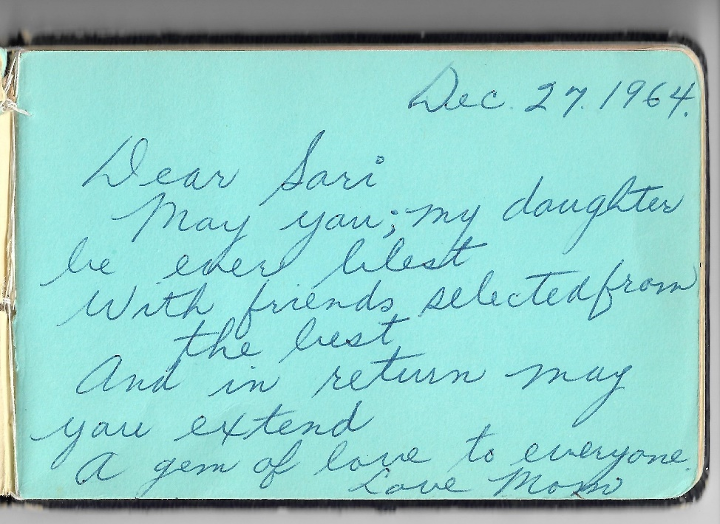 Dec. 27. 1964.
Dear Sari
May you; my daughter
be ever blest
With friends selected from
the best
And in return may
you extend
A gem of love to everyone.
Love Mom